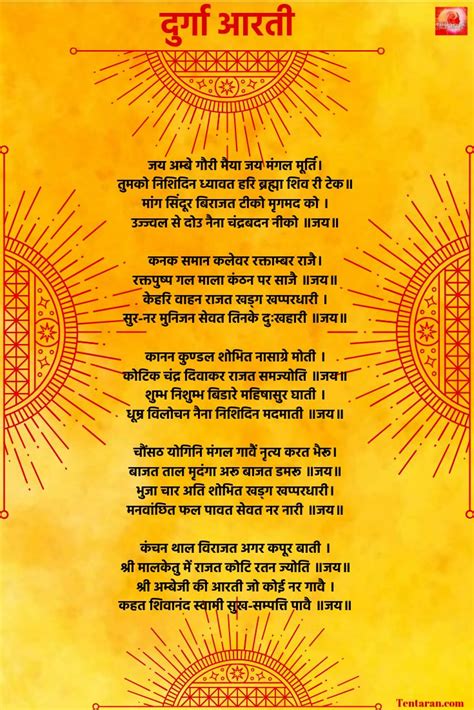 दुर्गा आरती
जय अम्बे गौरी मैया जय मंगल मूर्ति।
तुमको निशिदिन ध्यावत हरि ब्रह्मा शिव री टेक॥
मांग सिंदूर बिराजत टीको मृगमद को ।
उज्ज्वल से दोउ नैना चंद्रबदन नीको ॥जय॥
कनक समान कलेवर रक्ताम्बर राजै।
रक्तपुष्प गल माला कंठन पर साजै ॥जय॥
केहरि वाहन राजत खड्ग खप्परधारी ।
सुर-नर मुनिजन सेवत तिनके दुःखहारी ॥जय॥
कानन कुण्डल शोभित नासाग्रे मोती ।
कोटिक चंद्र दिवाकर राजत समज्योति ॥जय॥
शुम्भ निशुम्भ बिडारे महिषासुर घाती ।
धूम्र विलोचन नैना निशिदिन मदमाती ॥जय॥
चौंसठ योगिनि मंगल गावैं नृत्य करत भैरू।
बाजत ताल मृदंगा अरू बाजत डमरू ॥जय॥
भुजा चार अति शोभित खड्ग खप्परधारी।
मनवांछित फल पावत सेवत नर नारी ॥जय॥
कंचन थाल विराजत अगर कपूर बाती ।
श्री मालकेतु में राजत कोटि रतन ज्योति ॥जय॥
श्री अम्बेजी की आरती जो कोई नर गावै ।
कहत शिवानंद स्वामी सुख-सम्पत्ति पावै ॥जय॥
Tentaran.com